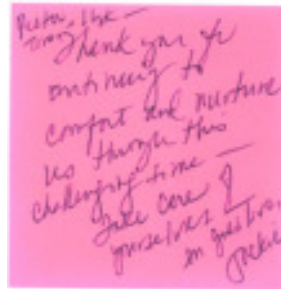 Thank you for
continuing to
comfort and nurture
us through this
challenging time —
Take care of
yourselves!
in gratitude,
Jackie